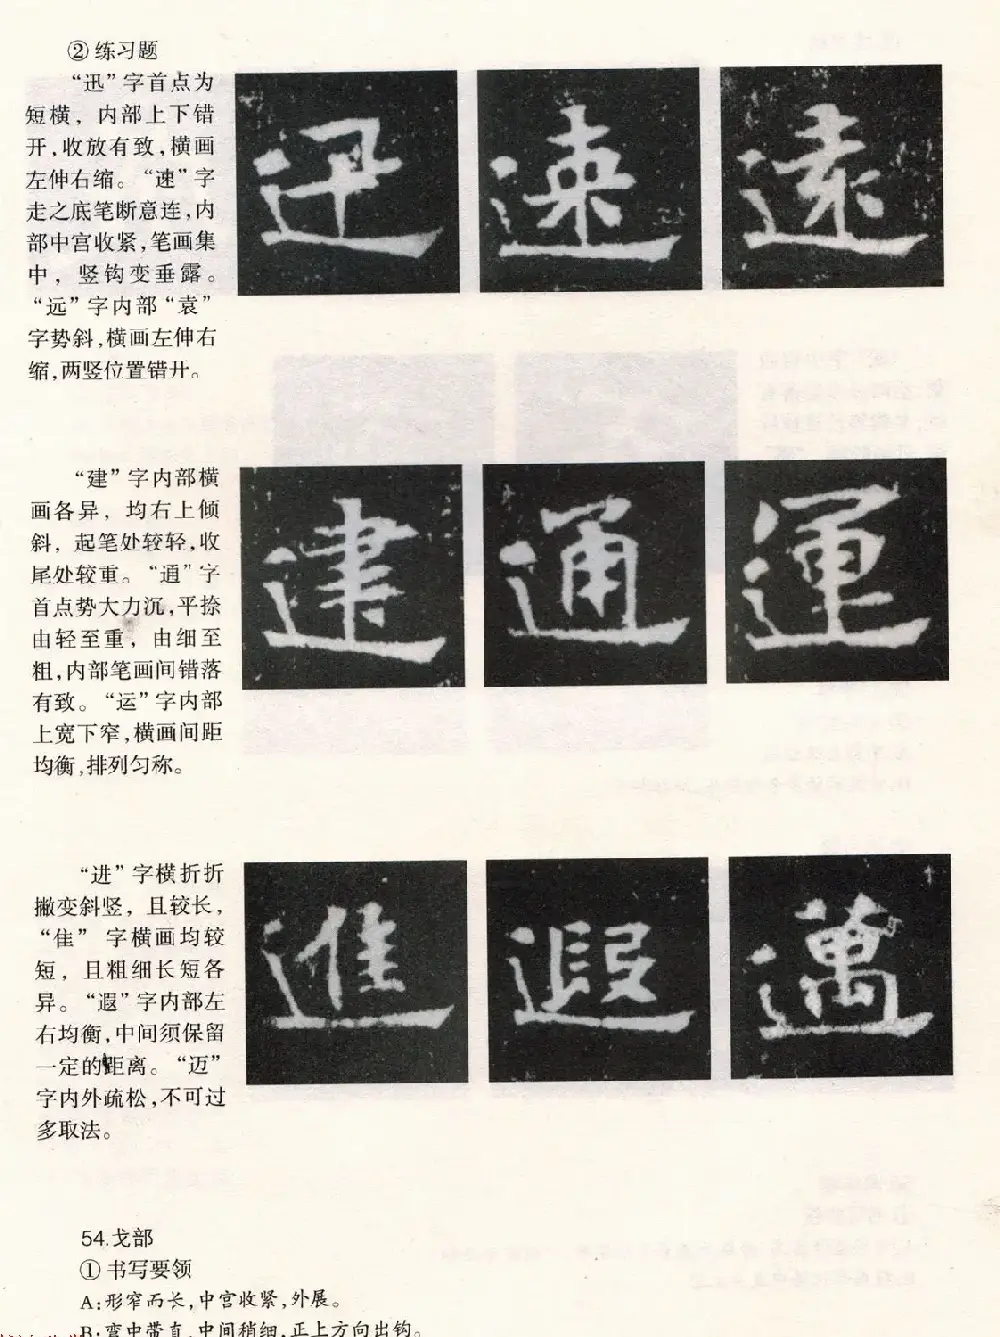 ②练习题
“迅”字首点为
短横，内部上下错
开，收放有致，横画
左伸右缩。“速”字
走之底笔断意连，内
部中宫收紧，笔画集
中，竖钩变垂露。
“远”字内部“袁”
字势斜，横画左伸右
缩，两竖位置错开。
迅 速 遠
“建”字内部横
画各异，均右上倾
斜，起笔处较轻，收
尾处较重。“通”字
首点势大力沉，平捺
由轻至重，由细至
粗，内部笔画间错落
有致。“运”字内部
上宽下窄，横画间距
均衡，排列匀称。
建 通 運
“进”字横折折
撇变斜竖，且较长，
“隹”字横画均较
短，且粗细长短各
异。“遐”字内部左
右均衡，中间须保留
一定的距离。“迈”
字内外疏松，不可过
多取法。
進 遐 邁
54.戈部
①书写要领
A：形窄而长，中宫收紧，外展。
B：弯中带直，中间稍细，正上方向出钩。